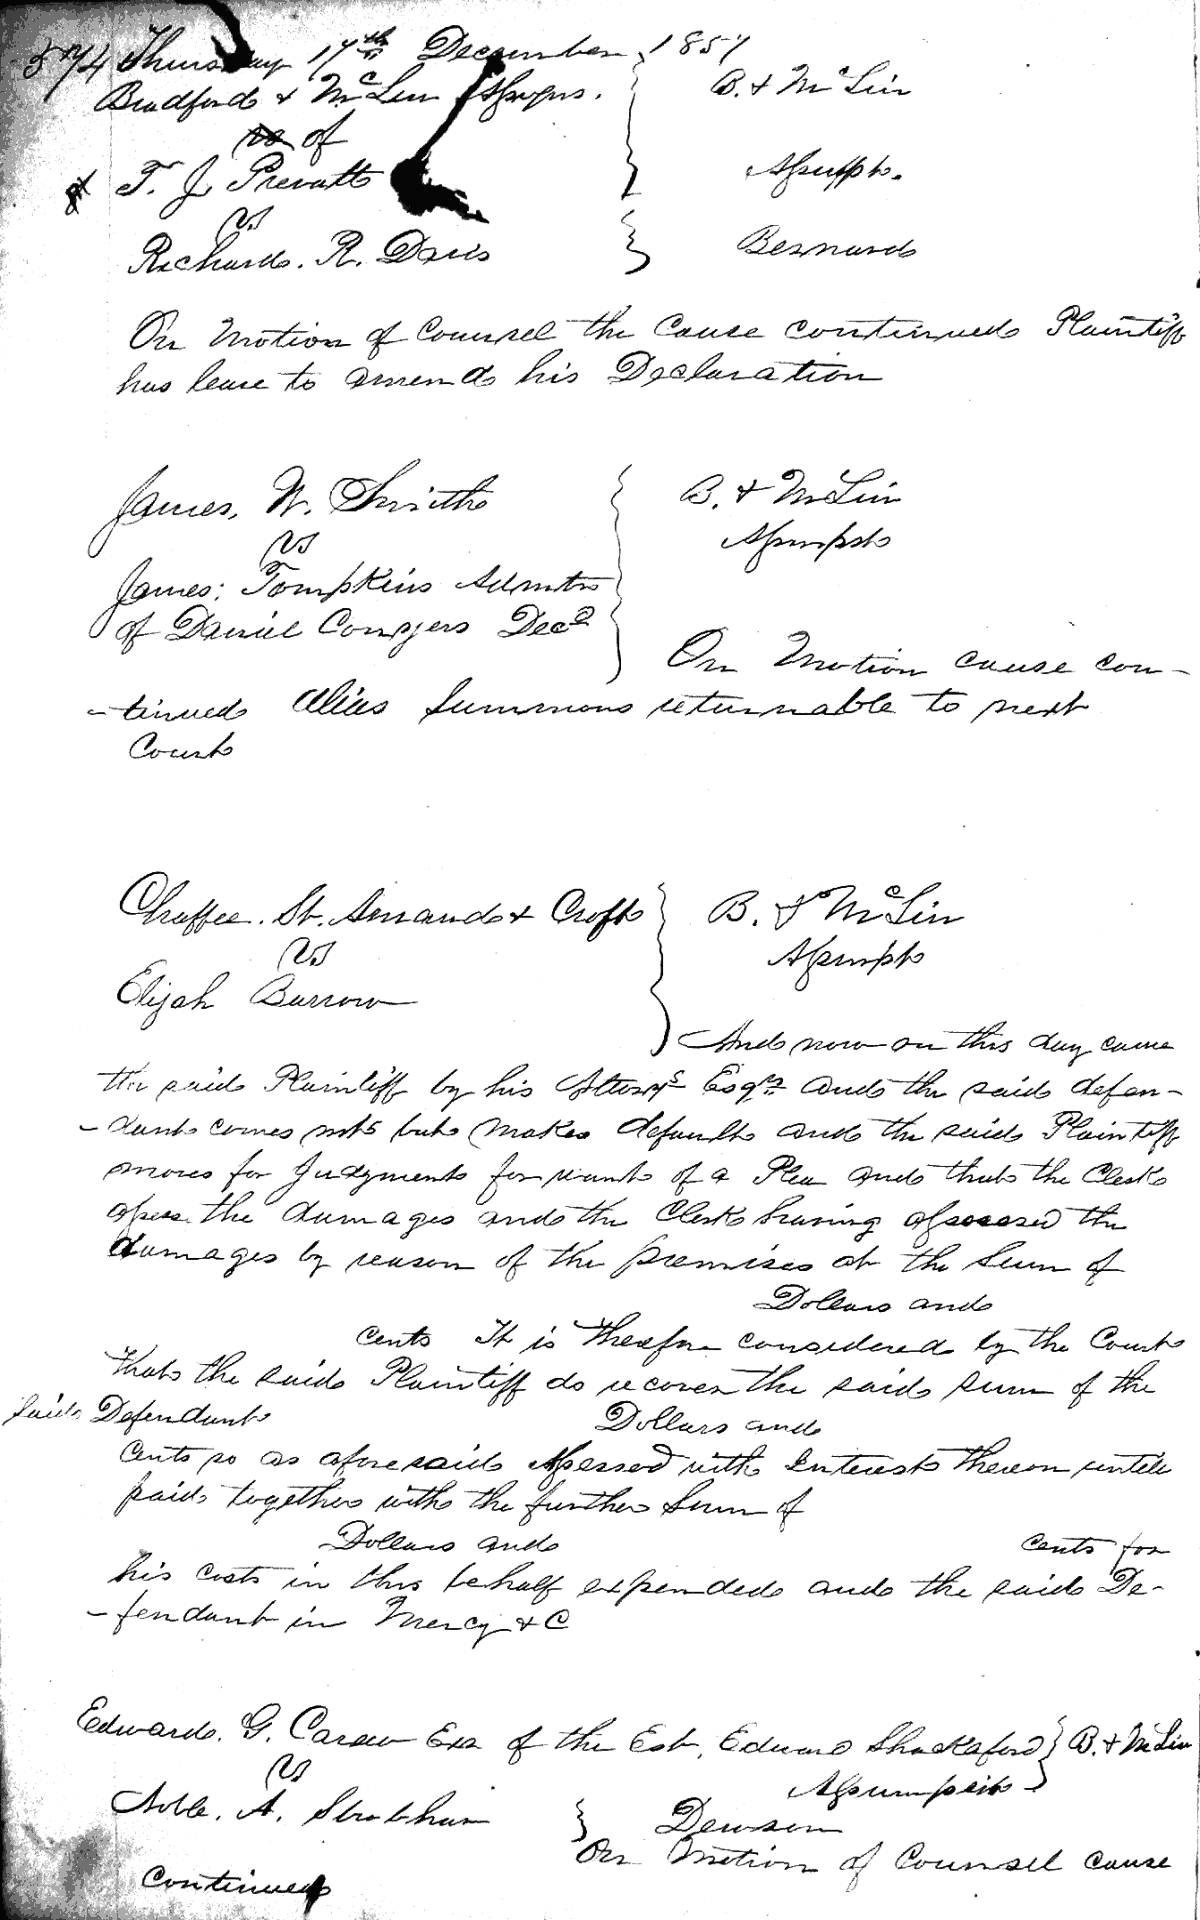 574 Thursday 17th December 1857
Bradford & McLin Assigns. B. & McLin
of
T. J. Prevatt Assumpt.
vs
Richard. R. Davis Bernard
On Motion of Counsel the Cause continued Plaintiff
has leave to amend his Declaration
James. W. Smith B. & McLin
vs Assumpst
James. Tompkins Admtr
of Daniel Conyers Decd
On Motion cause con-
-tinued Alias Summons returnable to next
Court
Chaffee. St. Amand & Croft B. & McLin
vs Assumpt
Elijah Barrow
And now on this day came
the said Plaintiff by his Attorys Esqrs and the said defen-
-dant comes not but makes default and the said Plaintiff
moves for Judgment for want of a Plea and that the Clerk
assess the damages and the Clerk having assessed the
damages by reason of the premises at the Sum of
Dollars and
cents It is therefore considered by the Court
that the said Plaintiff do recover the said sum of the
said Defendant Dollars and
cents so as aforesaid assessed with Interest thereon until
paid together with the further Sum of
Dollars and cents for
his costs in this behalf expended and the said De-
-fendant in Mercy & C
Edward. G. Carew Exr of the Est. Edward Shackaford B. & McLin
vs Assumpsit
Noble. A. Strabhan Dewson
On Motion of Counsel cause
Continued